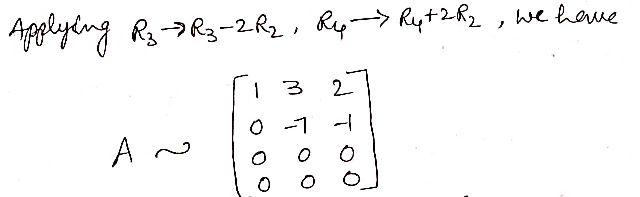 Applying R3 → R3-2R2, R4 → R4+2R2, we have
1 3 2
0 -7 -1
A ~
0 0 0
0 0 0